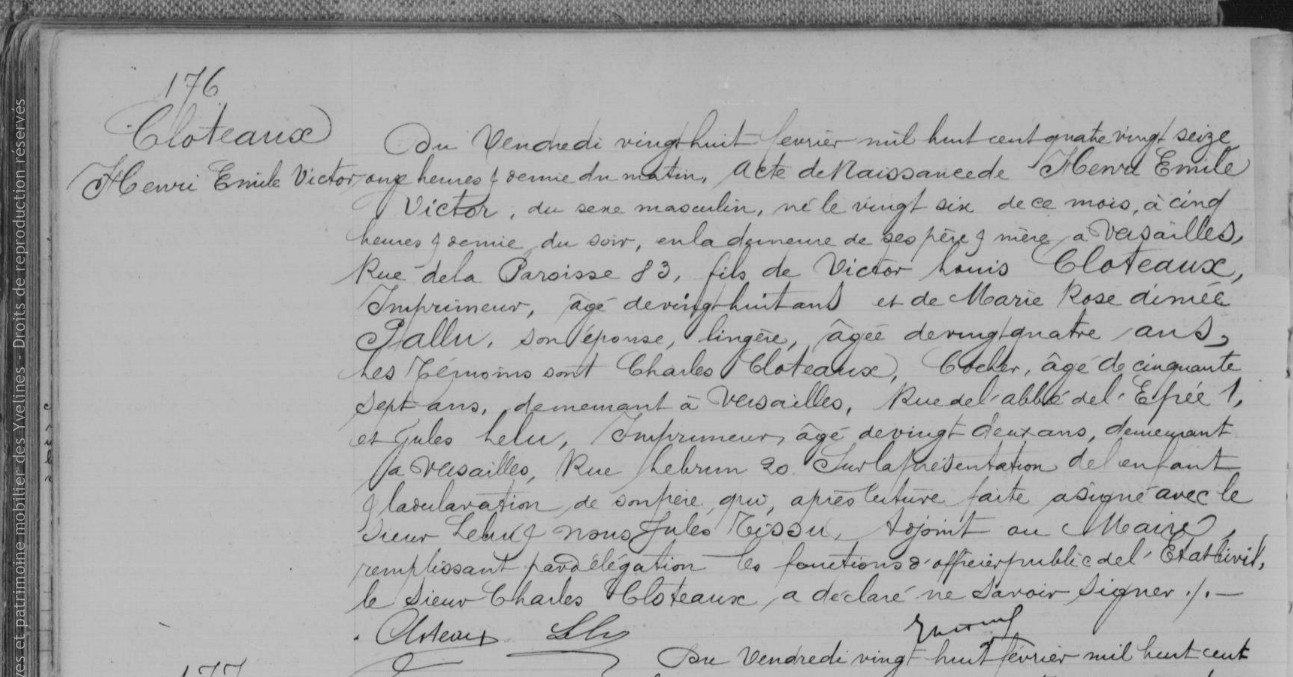 176
Cloteaux
Henri Emile Victor
Du Vendredi vingt huit fevrier mil huit cent quatre vingt seize
onze heures & demie du matin, Acte de Naissance de Henri Emile
Victor, du sexe masculin, né le vingt six de ce mois, à cinq
heures & demie du soir, en la demeure de ses père & mère, a Versailles,
Rue de la Paroisse 83, fils de Victor Louis Cloteaux,
Imprimeur, âgé de vingt huit ans et de Marie Rose Aimée
Pallu, son épouse, lingère, âgée de vingt quatre ans,
Les Témoins sont Charles Cloteaux, Cocher, âgé de cinquante
sept ans, demeurant à Versailles, Rue de l'abbé de l'Epée 1,
et Jules Lelu, Imprimeur, âgé de vingt deux ans, demeurant
a Versailles, Rue Lebrun 20. Sur la présentation de l'enfant
& la déclaration de son père, qui, après lecture faite a signé avec le
Sieur Lelu & nous Jules Tissu, Adjoint au Maire,
remplissant par délégation les fonctions d'officier public de l'Etat Civil,
le Sieur Charles Cloteaux a déclaré ne savoir signer ./. —
Cloteaux Lelu
177
Du Vendredi vingt huit février mil huit cent
ves et patrimoine mobilier des Yvelines - Droits de reproduction réservés